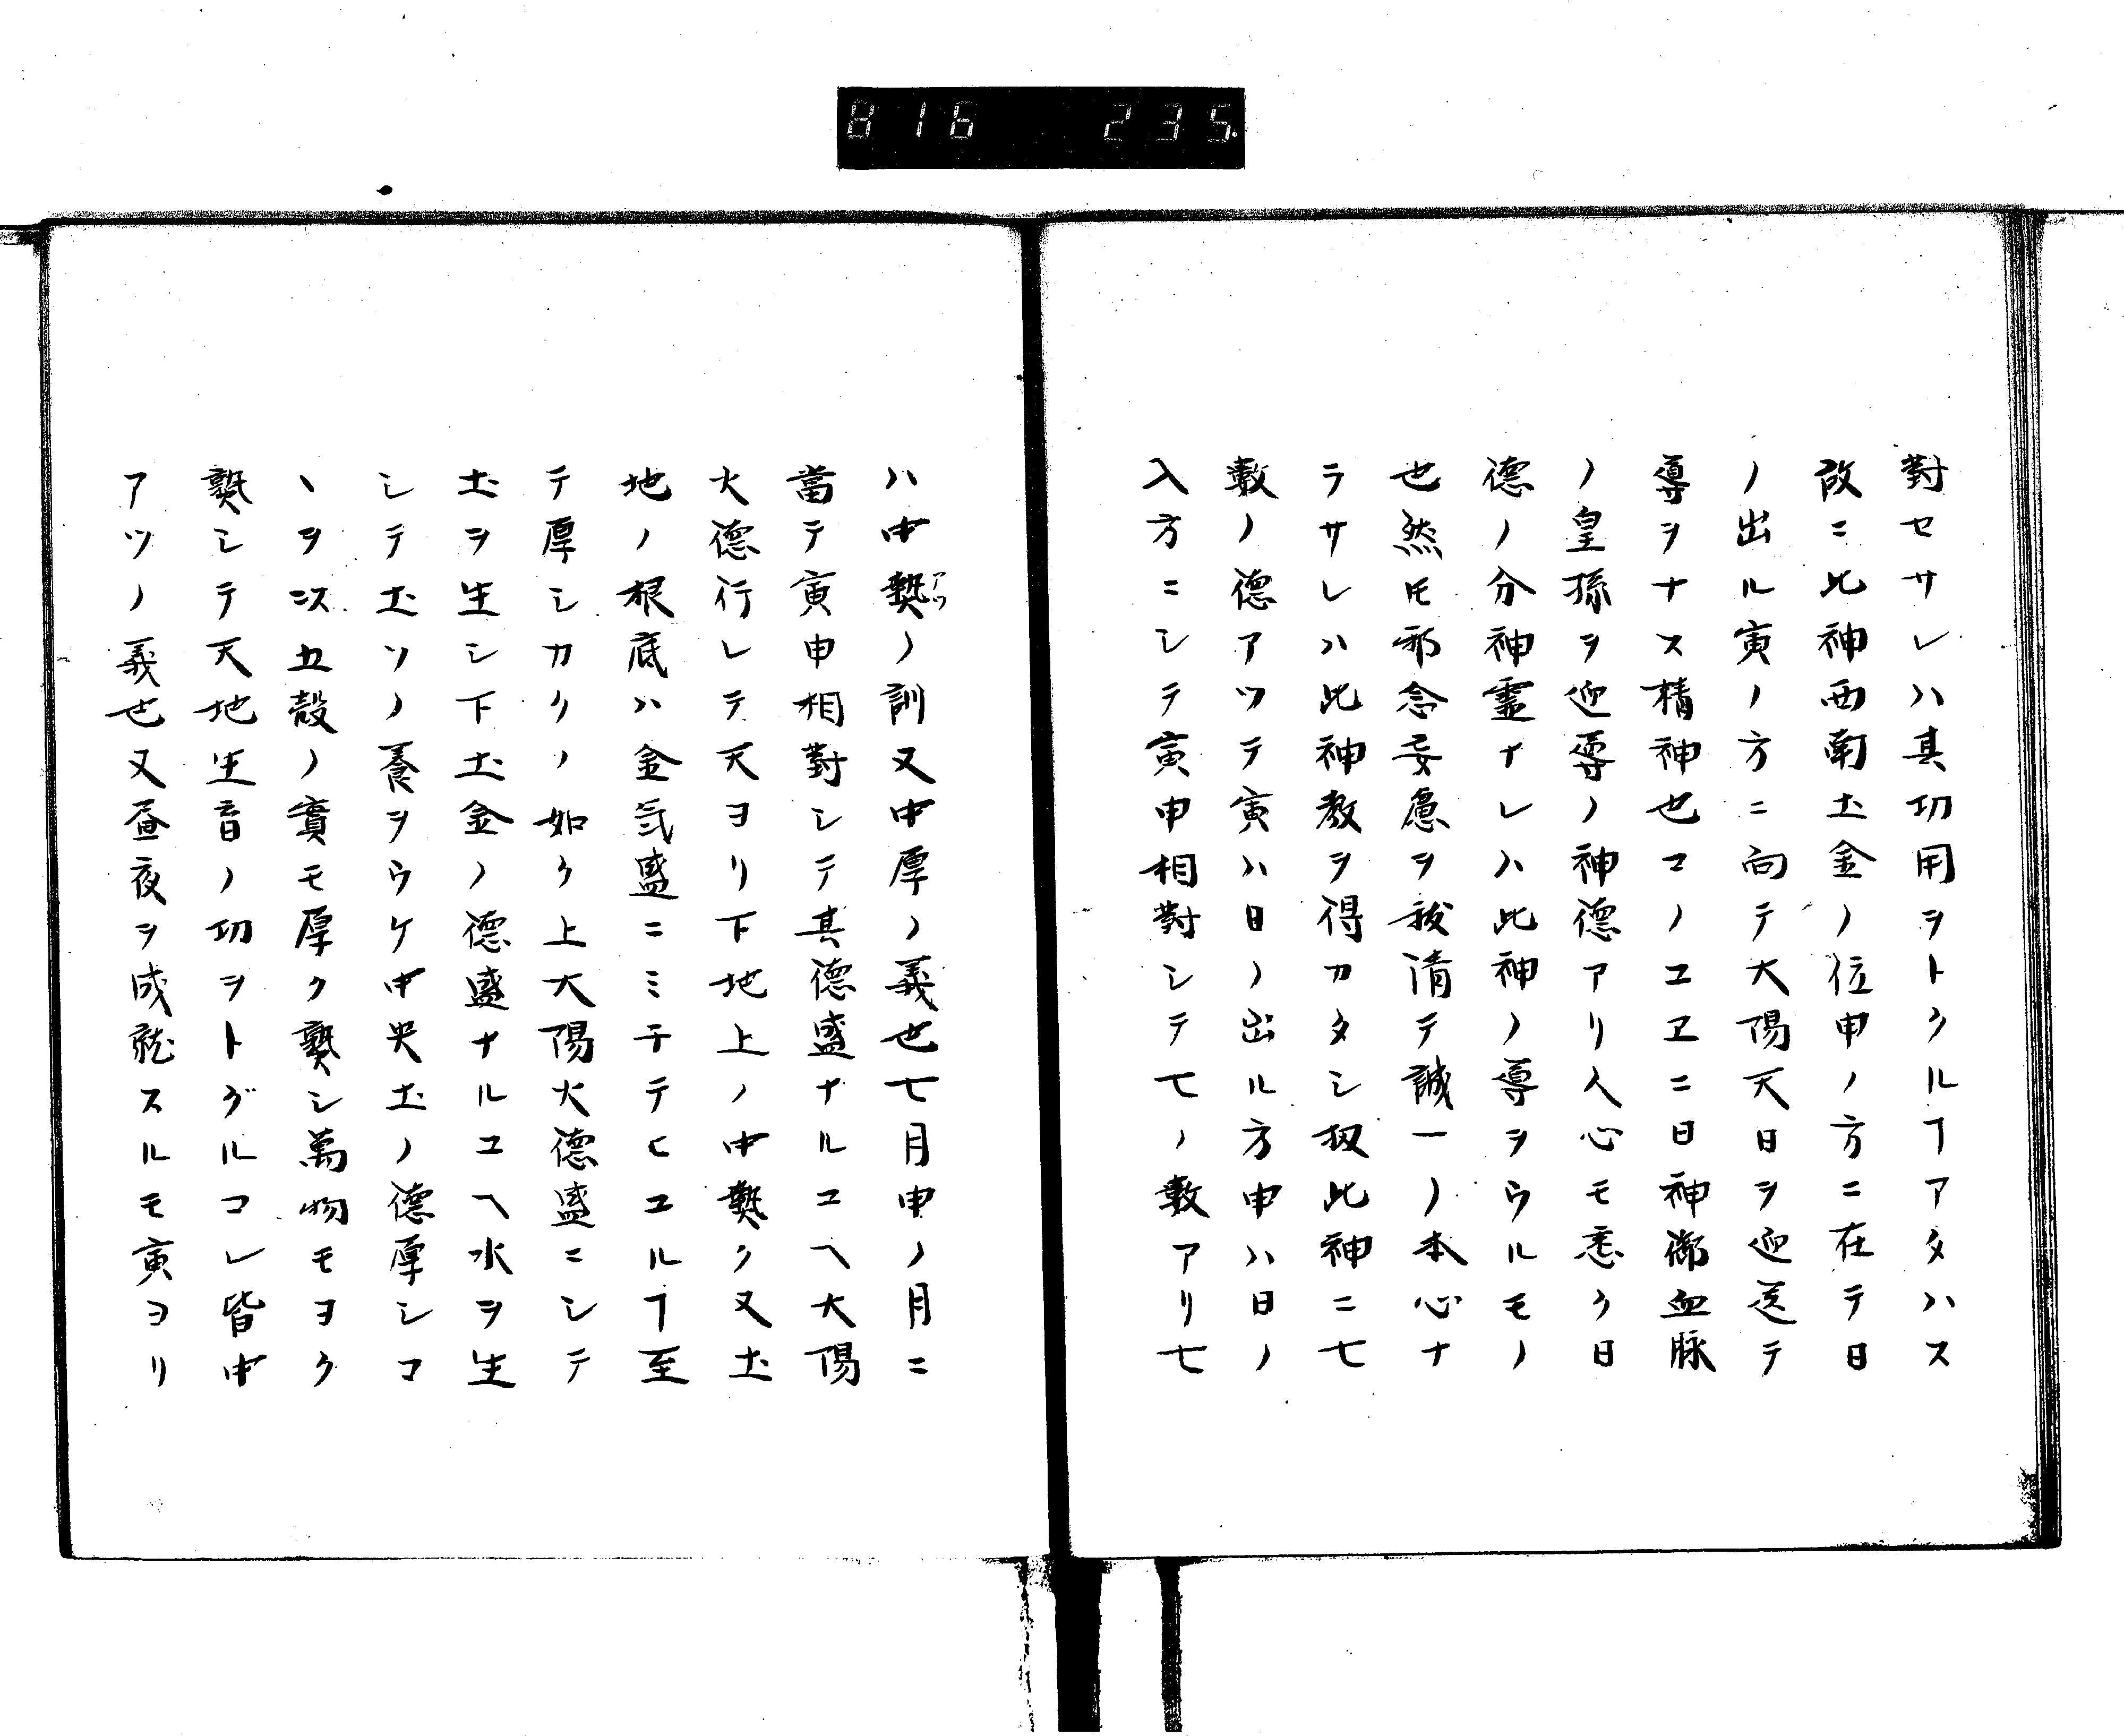 816 235.
對セサレハ其功用ヲトクルヿアタハス
故ニ此神西南土金ノ位申ノ方ニ在テ日
ノ出ル寅ノ方ニ向テ大陽天日ヲ迎送テ
導ヲナス精神也コノユヱニ日神御血脉
ノ皇孫ヲ迎導ノ神德アリ人心モ悉ク日
德ノ分神霊ナレハ此神ノ導ヲウルモノ
也然𪜈邪念妄慮ヲ祓清テ誠一ノ本心ナ
ラサレハ此神教ヲ得カタシ扨此神ニ七
數ノ德アツテ寅ハ日ノ出ル方申ハ日ノ
入方ニシテ寅申相對シテ七ノ數アリ七
ハ中熱アツノ訓又中厚ノ義也七月申ノ月ニ
當テ寅申相對シテ其德盛ナルユヘ大陽
火德行レテ天ヨリ下地上ノ中熱ク又土
地ノ根底ハ金氣盛ニミチテヒユルヿ至
テ厚シカクノ如ク上大陽火德盛ニシテ
土ヲ生シ下土金ノ德盛ナルユヘ水ヲ生
シテ土ソノ養ヲウケ中央土ノ德厚シコ
ヽヲ以五穀ノ實モ厚ク熟シ萬物モヨク
熟シテ天地生育ノ功ヲトグルコレ皆中
アツノ義也又昼夜ヲ成就スルモ寅ヨリ